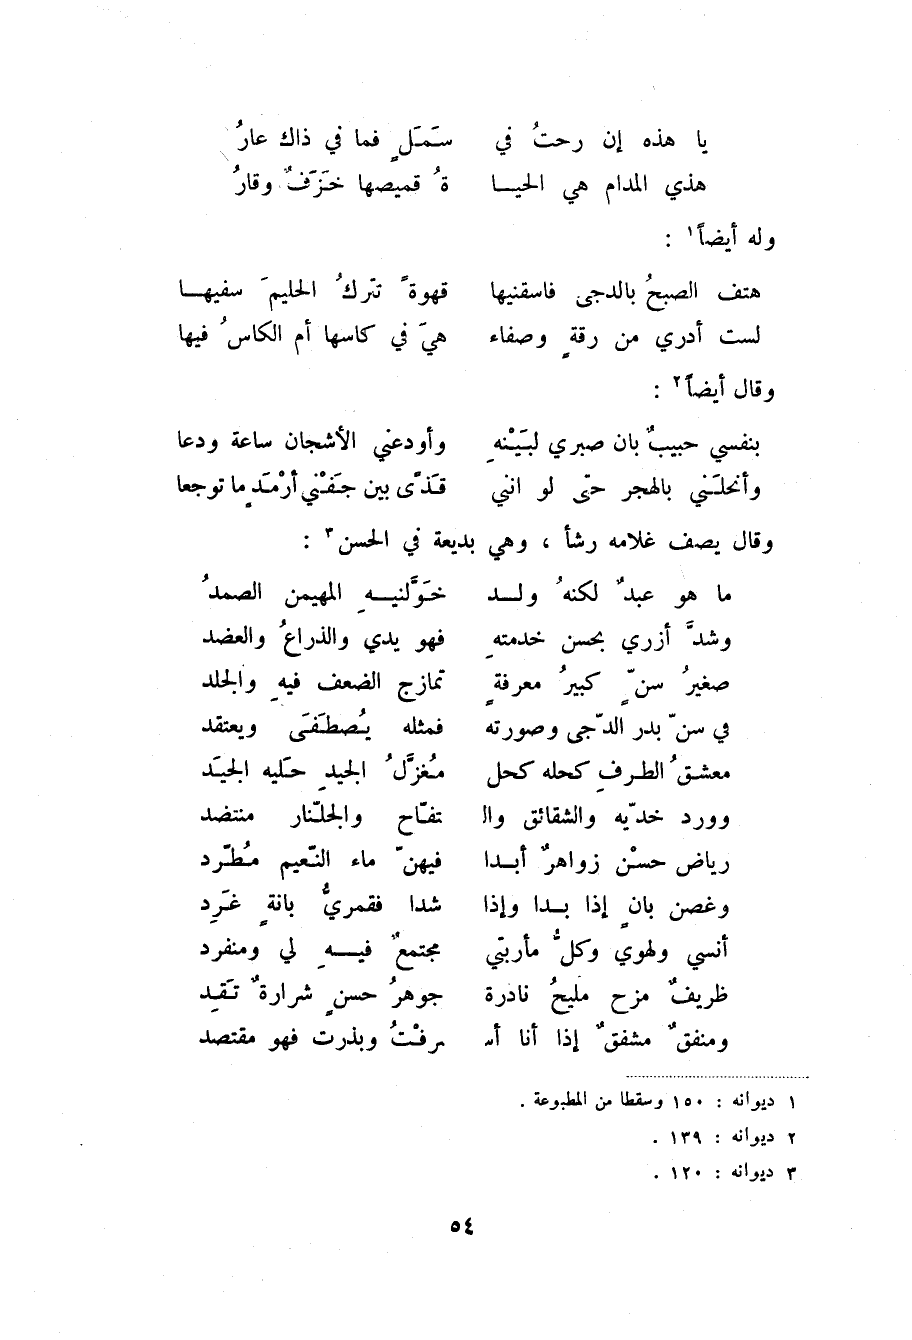 يا هذه إن رحتُ في سَمَلٍ فما في ذاك عارُ
هذي المدام هي الحيــا ةُ قميصها خَزَفٌ وقارُ
وله أيضاً١ :
هتف الصبحُ بالدجى فاسقنيها قهوةً تتركُ الحليمَ سفيهــا
لست أدري من رقةٍ وصفاء هيَ في كاسها أم الكاسُ فيها
وقال أيضاً٢ :
بنفسي حبيبٌ بان صبري لبَيْنهِ وأودعني الأشجان ساعة ودعا
وأنحلَني بالهجر حتى لو انني قَذىً بين جَفْني أرْمَدٍ ما توجعا
وقال يصف غلامه رشأ ، وهي بديعة في الحسن٣ :
ما هو عبدٌ لكنهُ ولــد خَوَّلنيــهِ المهيمن الصمدُ
وشدَّ أزري بحسن خدمتهِ فهو يدي والذراعُ والعضد
صغيرُ سنٍّ كبيرُ معرفةٍ تمازج الضعف فيهِ والجلد
في سنّ بدر الدّجى وصورته فمثله يُصطَفَى ويعتقد
معشقُ الطرفِ كحله كحل مُغزَّلُ الجيدِ حَليه الجيَد
وورد خدّيه والشقائق وال تفّاح والجلّنار منتضد
رياض حسْن زواهرٌ أبدا فيهنّ ماء النّعيم مطّرد
وغصن بانٍ إذا بــدا وإذا شدا فقمريُّ بانةٍ غَرِد
أنسي ولهوي وكلُّ مأربتي مجتمعٌ فيــهِ لي ومنفرد
ظريفٌ مزح مليحُ نادرة جوهرُ حسنٍ شرارةٌ تَقِد
ومنفقٌ مشفقٌ إذا أنا أسـ ـرفْتُ وبذرت فهو مقتصد
١ ديوانه : ١٥٠ وسقطا من المطبوعة .
٢ ديوانه : ١٣٩ .
٣ ديوانه : ١٢٠ .
٥٤